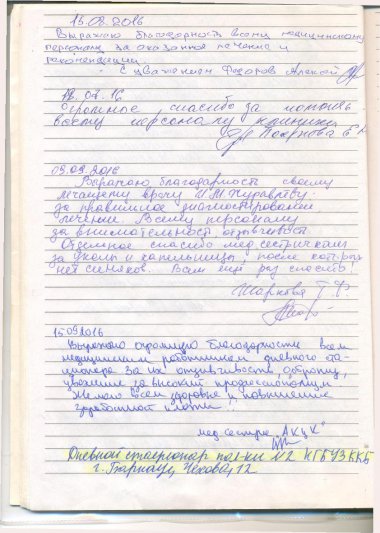 15.08.2016
Выражаю благодарность всему медицинскому
персоналу за оказанное лечение и
рекомендации.
С уважением Федоров Алексей
18.02.16
Огромное спасибо за помощь
всему персоналу клиники
09.09.2016
Выражаю благодарность своему
лечащему врачу
за правильное диагностирование
лечение. Всему персоналу
за внимательность, отзывчивость
Отдельное спасибо мед. сестричкам
за уколы и капельницы, после которых
нет синяков. Вам ещё раз спасибо!
Шаркова Т.Ф.
15.09.2016
Выражаю огромную благодарность всем
медицинским работникам дневного ста-
ционара за их отзывчивость, доброту,
уважение за высокий профессионализм
Желаю всем здоровье и повышение
заработной платы!!
мед. сестра "АКЦК"
Дневной стационар пол-ки №2 КГБУЗ ККБ
г. Барнаул, Чехова, 12